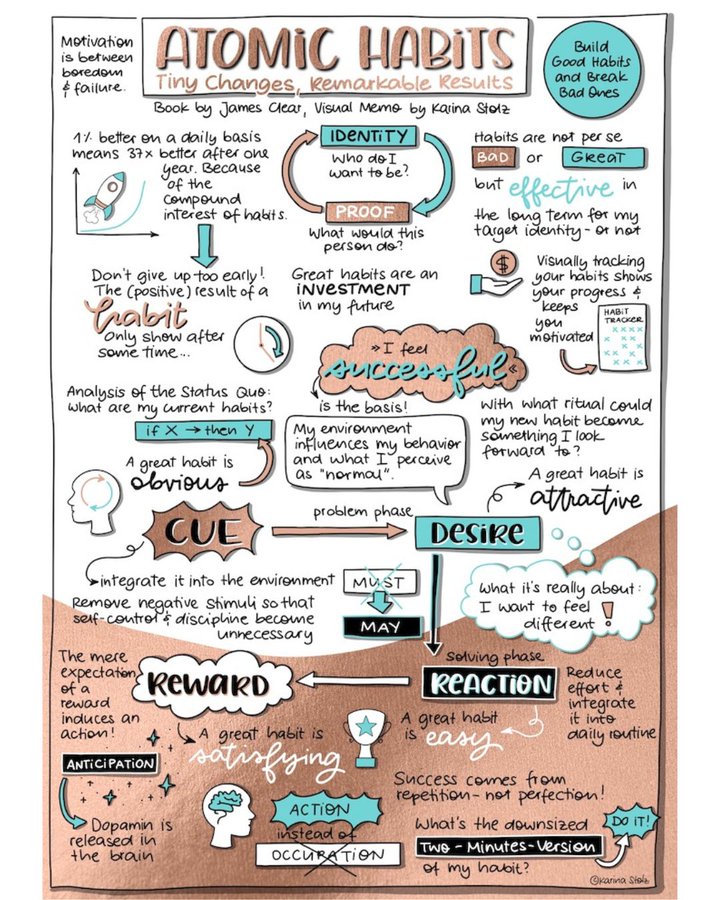 Motivation
is between
boredom
& failure.
ATOMIC HABITS
Tiny Changes, Remarkable Results
Book by James Clear, Visual Memo by Karina Stolz
Build
Good Habits
and Break
Bad Ones
1% better on a daily basis
means 37x better after one
year. Because
of the
compound
interest of habits.
IDENTITY
Who do I
want to be?
PROOF
What would this
person do?
Habits are not per se
BAD or GREAT
but effective in
the long term for my
target identity - or not
Don't give up too early!
The (positive) result of a
habit
Only show after
some time...
Great habits are an
INVESTMENT
in my future
$
Visually tracking
your habits shows
your progress &
keeps
you
motivated
HABIT
TRACKER
»I feel
successful«
is the basis!
Analysis of the Status Quo:
what are my current habits?
if X → then Y
A great habit is
obvious
My environment
influences my behavior
and what I perceive
as "normal".
With what ritual could
my new habit become
something I look
forward to?
A great habit is
attractive
CUE
problem phase
DESIRE
integrate it into the environment
Remove negative stimuli so that
self-control & discipline become
unnecessary
MUST
MAY
What it's really about:
I want to feel
different!
The mere
expectation
of a
reward
induces an
action!
REWARD
solving phase
REACTION
Reduce
effort &
integrate
it into
daily routine
A great habit is
satisfying
A great habit
is easy
ANTICIPATION
Dopamin is
released in
the brain
ACTION
instead of
OCCUPATION
Success comes from
repetition - not perfection!
What's the downsized
Two-Minutes-Version
of my habit?
DO IT!
©Karina Stolz